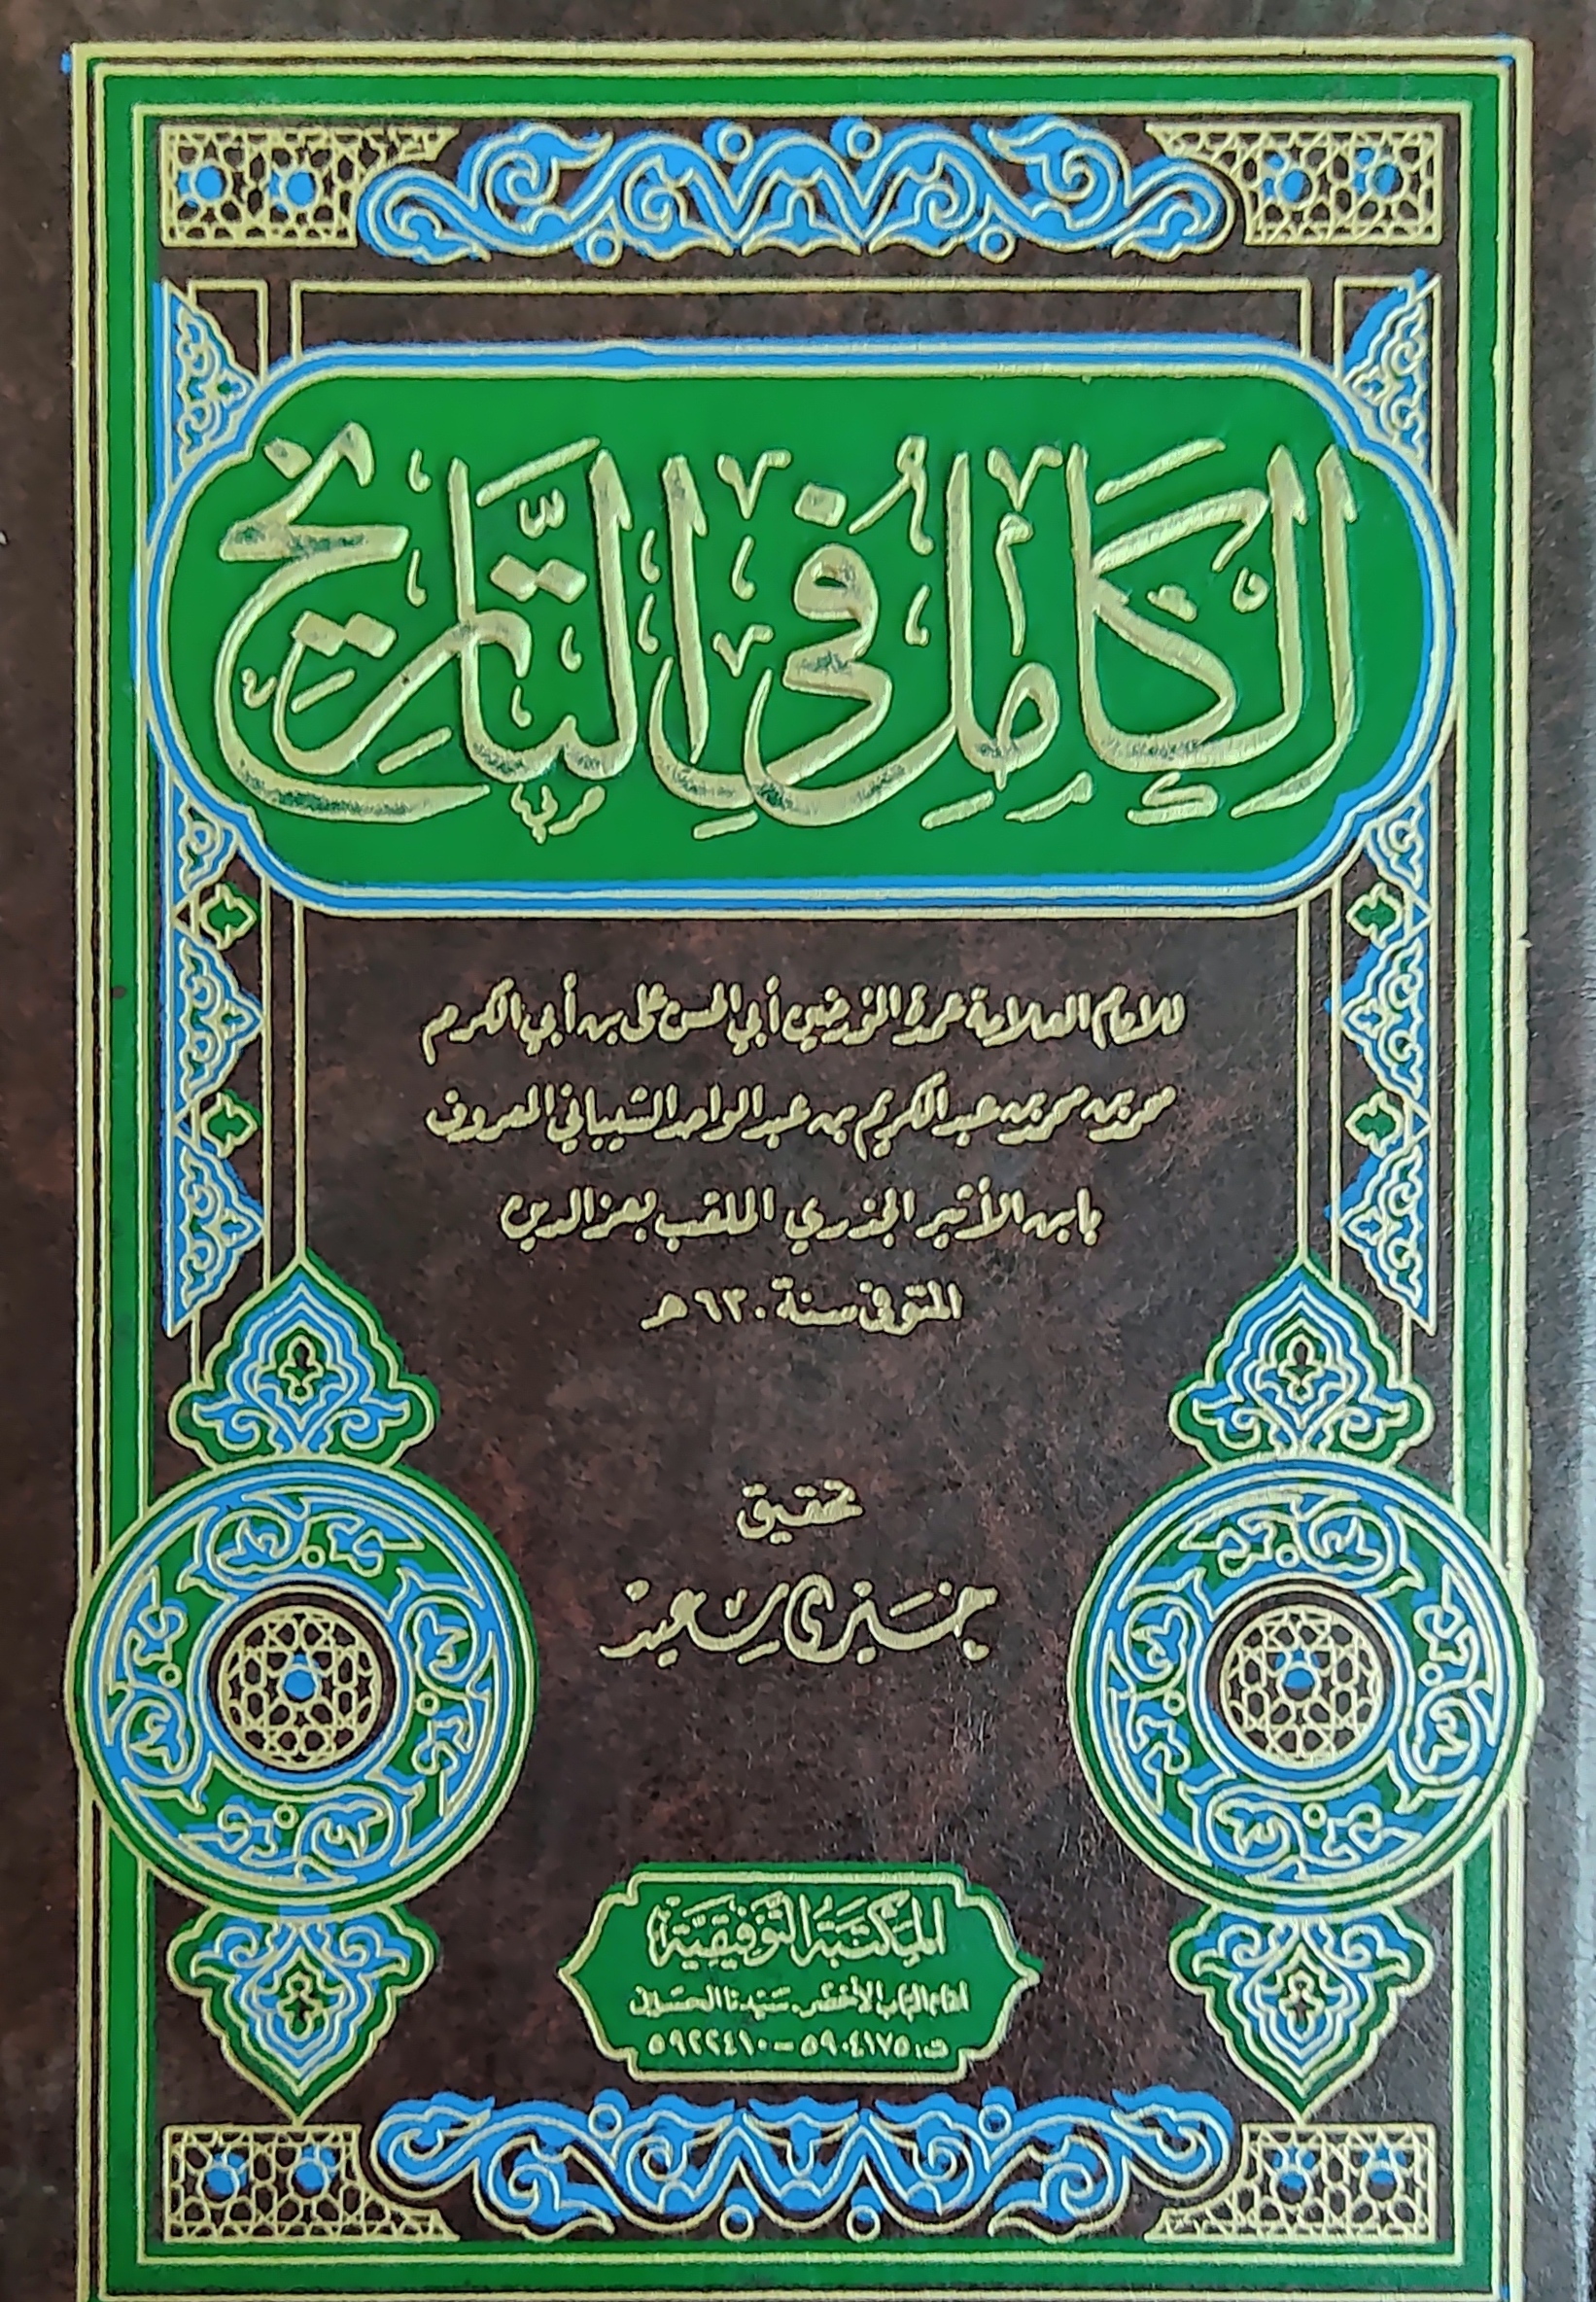 الكَامِلُ فِي التَّارِيخِ
للإمام العلامة عمدة المؤرخين أبي الحسن على بن أبي الكرم
محمد بن محمد بن عبد الكريم بن عبد الواحد الشيباني المعروف
بابن الأثير الجزري الملقب بعز الدين
المتوفى سنة ٦٣٠ هـ
تحقيق
خيري سعيد
المكتبة التوفيقية
أمام الباب الأخضر. سيدنا الحسين
ت: ٥٩٠٤١٧٥ - ٥٩٢٢٤١٠